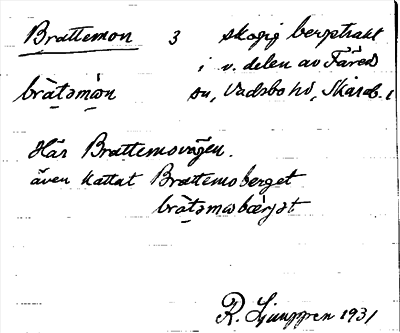 Brattemon 3 skogig bergstrakt
i v. delen av Färed
bràtəmòn sn, Vadsbo hd, Skarab. l
Här Brattemovägen.
även kallat Brattemoberget
bràtəmωbærjət
R. Ljunggren 1931